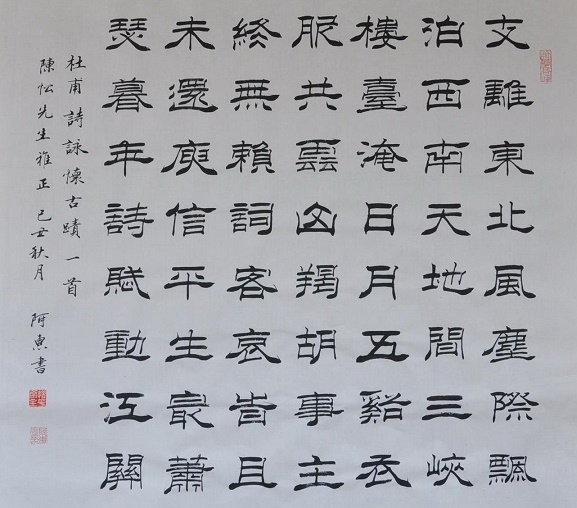 支離東北風塵際飄
泊西南天地間三峽
樓臺淹日月五谿衣
服共雲山羯胡事主
終無賴詞客哀旹且
未還庾信平生最蕭
瑟暮年詩賦動江關
杜甫詩詠懷古蹟一首
陳松先生雅正 己丑秋月 阿書